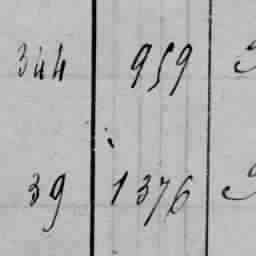 344 959
39 1376